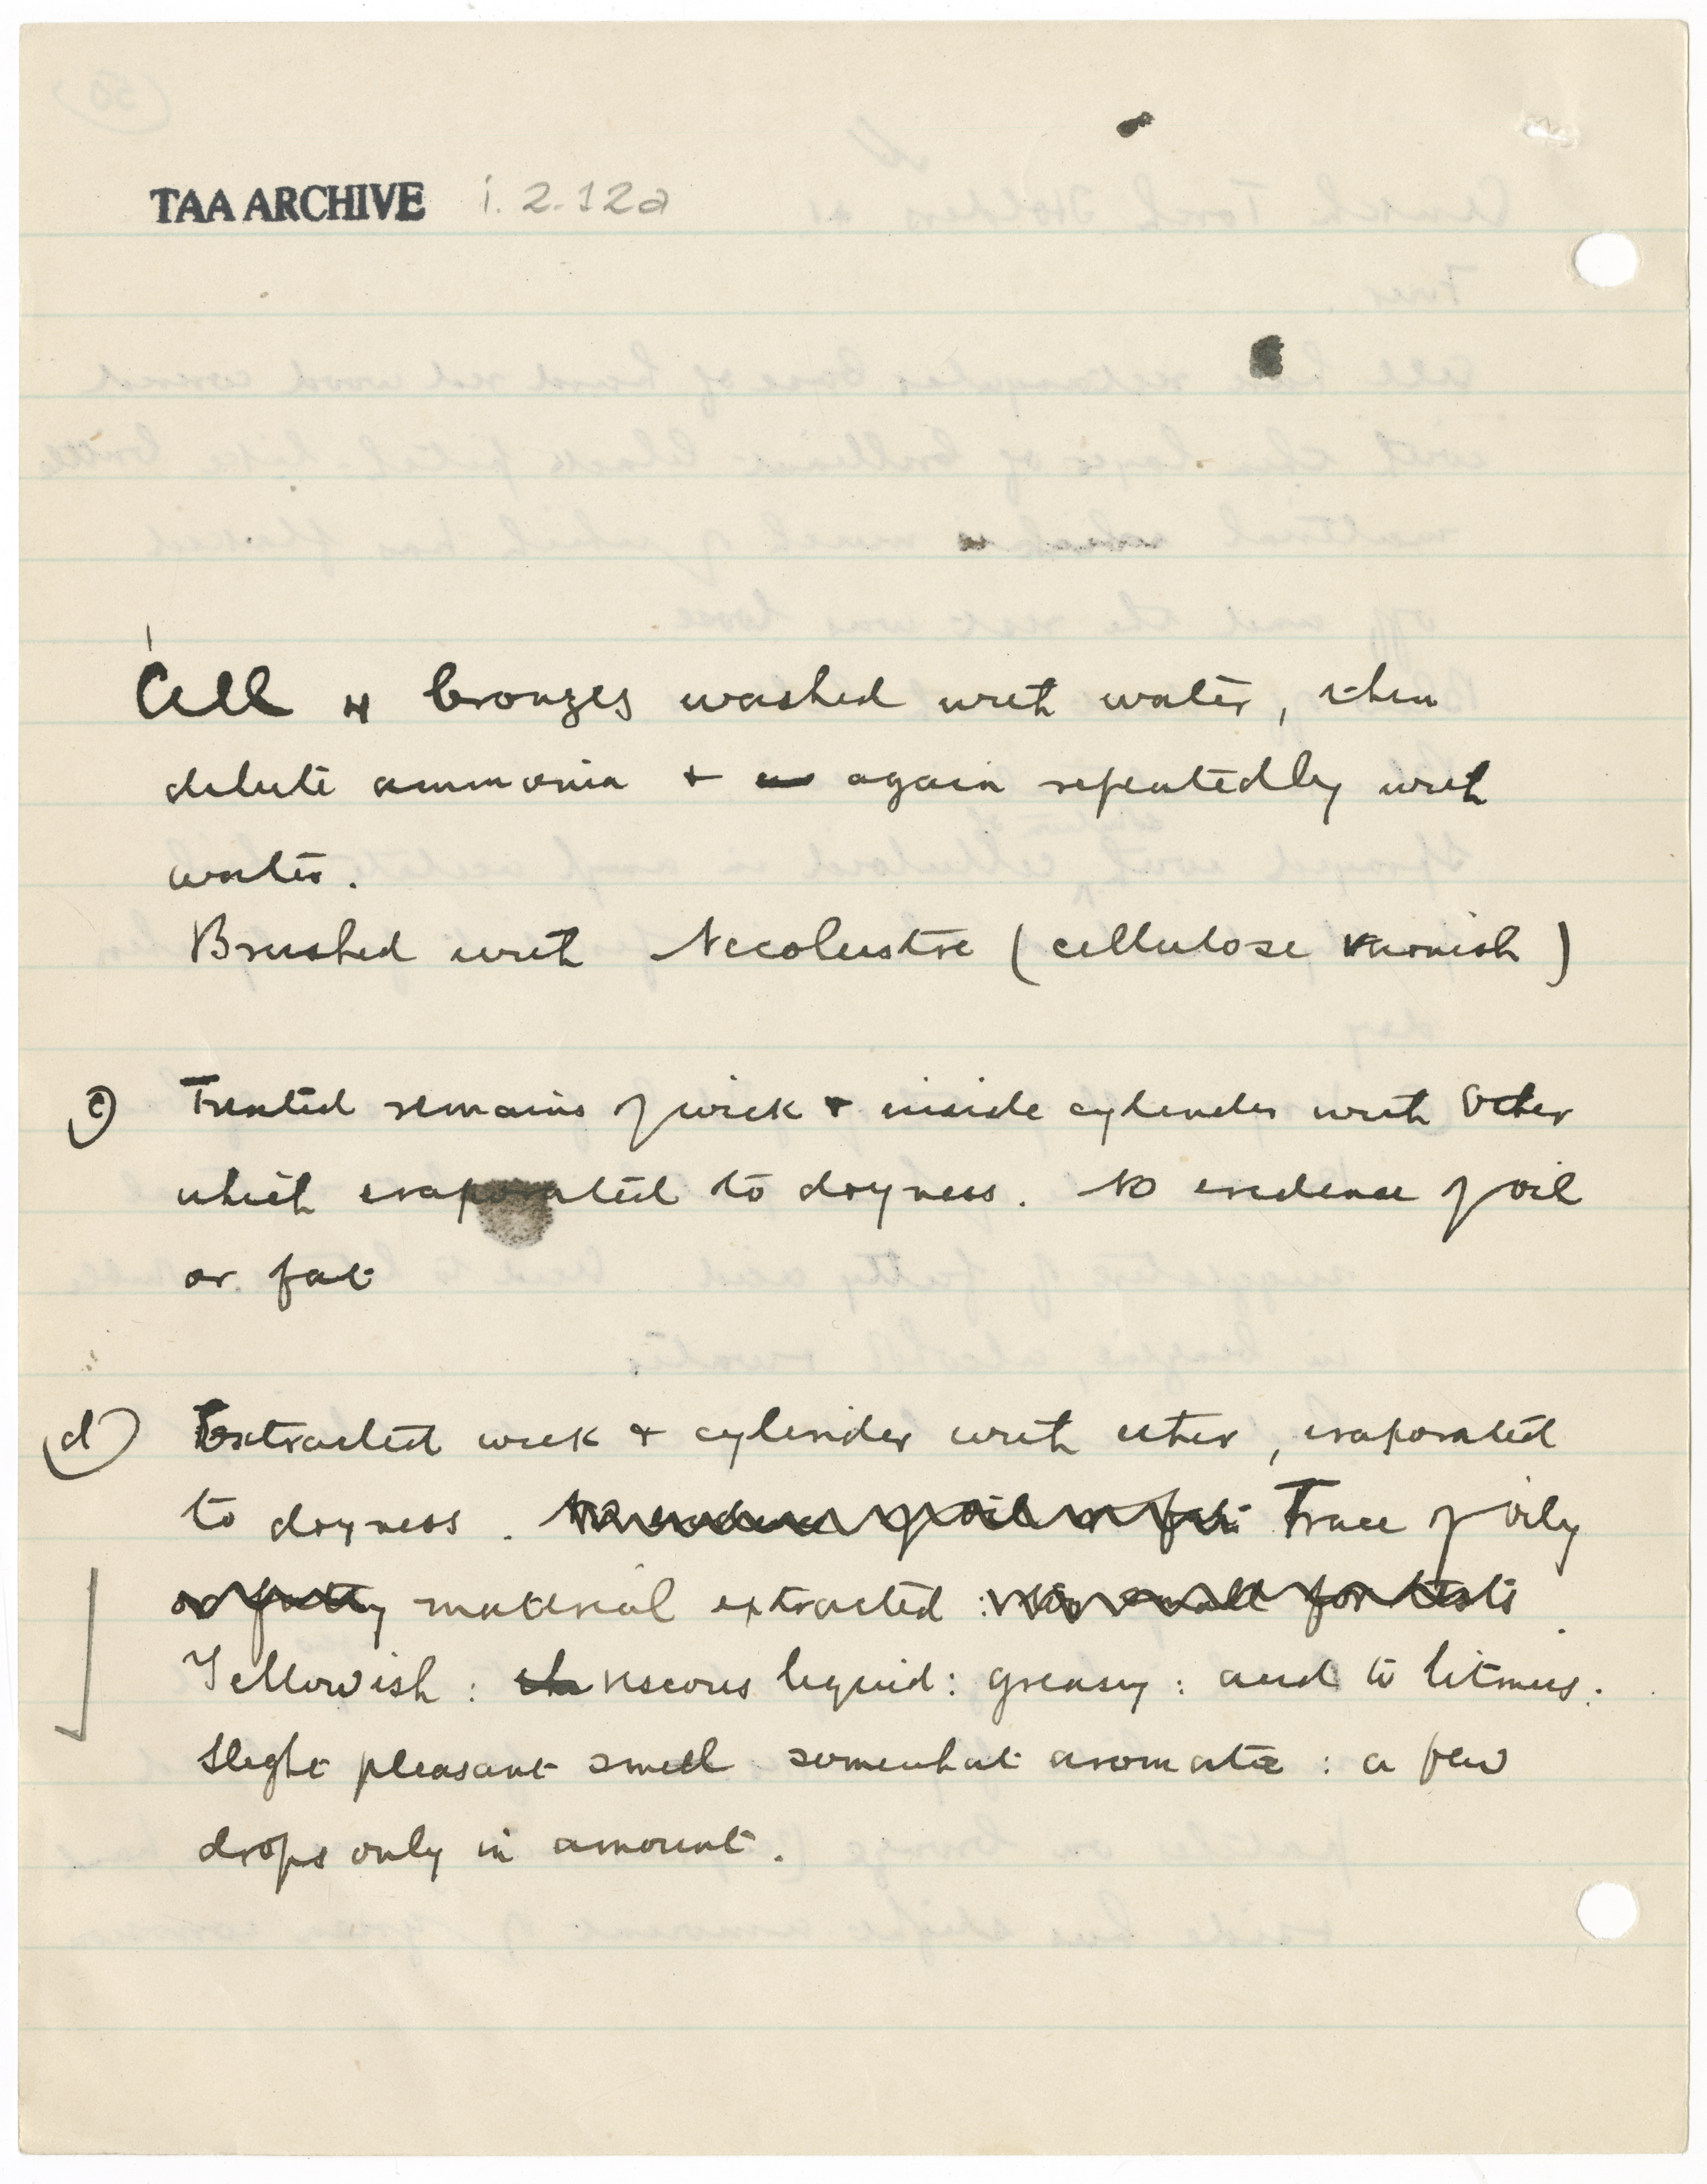 TAA ARCHIVE i.2.12a
All 4 bronzes washed with water, then
dilute ammonia + again repeatedly with
water.
Brushed with Necolustre (cellulose varnish)
c) Treated remains of wick + inside cylinder with ether
which evaporated to dryness. No evidence of oil
or fat
d) Extracted wick + cylinder with ether, evaporated
to dryness. No evidence of oil or fat Trace of oily
or fatty material extracted : too small for tests.
Yellowish : viscous liquid : greasy : acid to litmus :
Slight pleasant smell somewhat aromatic : a few
drops only in amount.